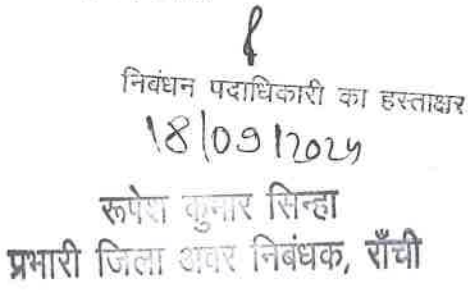 निबंधन पदाधिकारी का हस्ताक्षर
18/09/2024
रूपेश कुमार सिन्हा
प्रभारी जिला अवर निबंधक, राँची